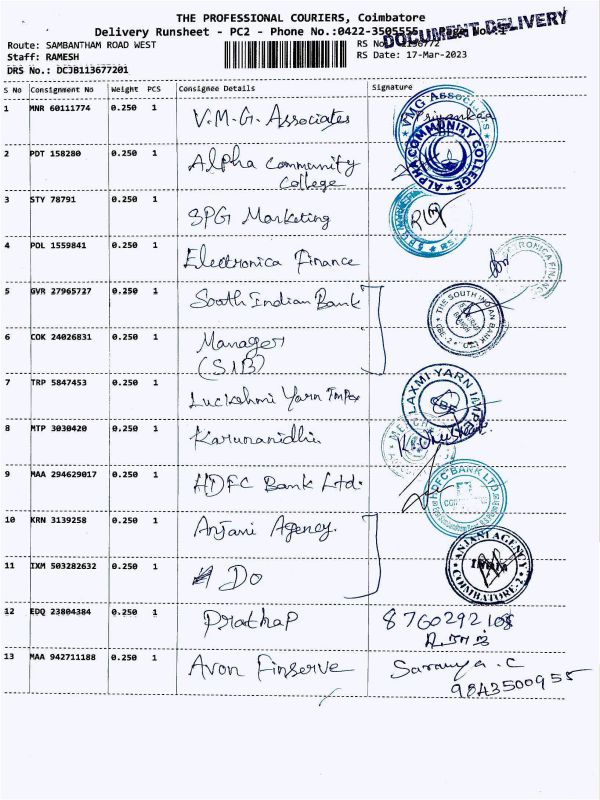 THE PROFESSIONAL COURIERS, Coimbatore
Delivery Runsheet - PC2 - Phone No.:0422-3505555
DOCUMENT DELIVERY
Route: SAMBANTHAM ROAD WEST
Staff: RAMESH RS Date: 17-Mar-2023
DRS No.: DCJB113677201
S No Consignment No Weight PCS Consignee Details Signature
1 MNR 60111774 0.250 1 V.M.G. Associates Priyanka
VMG Associates
2 PDT 158280 0.250 1 Alpha Community
College
ALPHA COMMUNITY COLLEGE
3 STY 78791 0.250 1 SPG Marketing
4 POL 1559841 0.250 1 Electronica Finance
5 GVR 27965727 0.250 1 South Indian Bank
THE SOUTH INDIAN BANK
6 COK 24026831 0.250 1 Manager
(SIB)
7 TRP 5847453 1 0.250 Luckshmi Yarn Impex
LAXMI YARN IMPEX
8 MTP 3030420 0.250 1 Karunanidhi
9 MAA 294629017 0.250 1 HDFC Bank Ltd.
HDFC BANK LTD.
10 KRN 3139258 0.250 1 Anjani Agency.
ANJANI AGENCY
COIMBATORE-2
11 IXM 503282632 0.250 1 Do
12 EDQ 23804384 0.250 1 Prathap 8760292108
13 MAA 942711188 0.250 1 Avon Finserve Saranya.C
9843500955